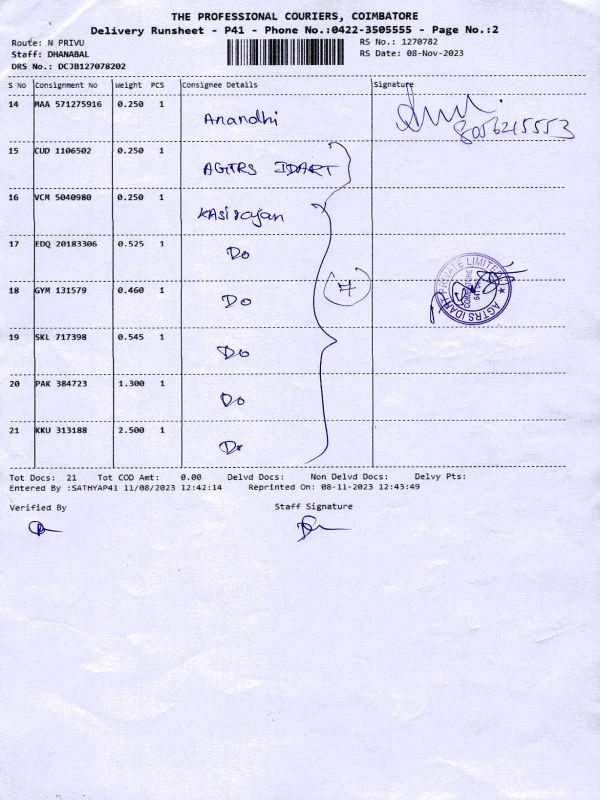 THE PROFESSIONAL COURIERS, COIMBATORE
Delivery Runsheet - P41 - Phone No.:0422-3505555 - Page No.:2
Route: N PRIVU RS No.: 1270782
Staff: DHANABAL RS Date: 08-Nov-2023
DRS No.: DCJB127078202
S No Consignment No Weight PCS Consignee Details Signature
14 MAA 571275916 0.250 1 Anandhi 8056215553
15 CUD 1106502 0.250 1 AGTRS IDART
16 VCM 5040980 0.250 1 KASirajan
17 EDQ 20183306 0.525 1 Do
18 GYM 131579 0.460 1 Do 7
AGTRS IDART PRIVATE LIMITED
19 SKL 717398 0.545 1 Do
20 PAK 384723 1.300 1 Do
21 KKU 313188 2.500 1 Do
Tot Docs: 21 Tot COD Amt: 0.00 Delvd Docs: Non Delvd Docs: Delvy Pts:
Entered By :SATHYAP41 11/08/2023 12:42:14 Reprinted On: 08-11-2023 12:43:49
Verified By Staff Signature